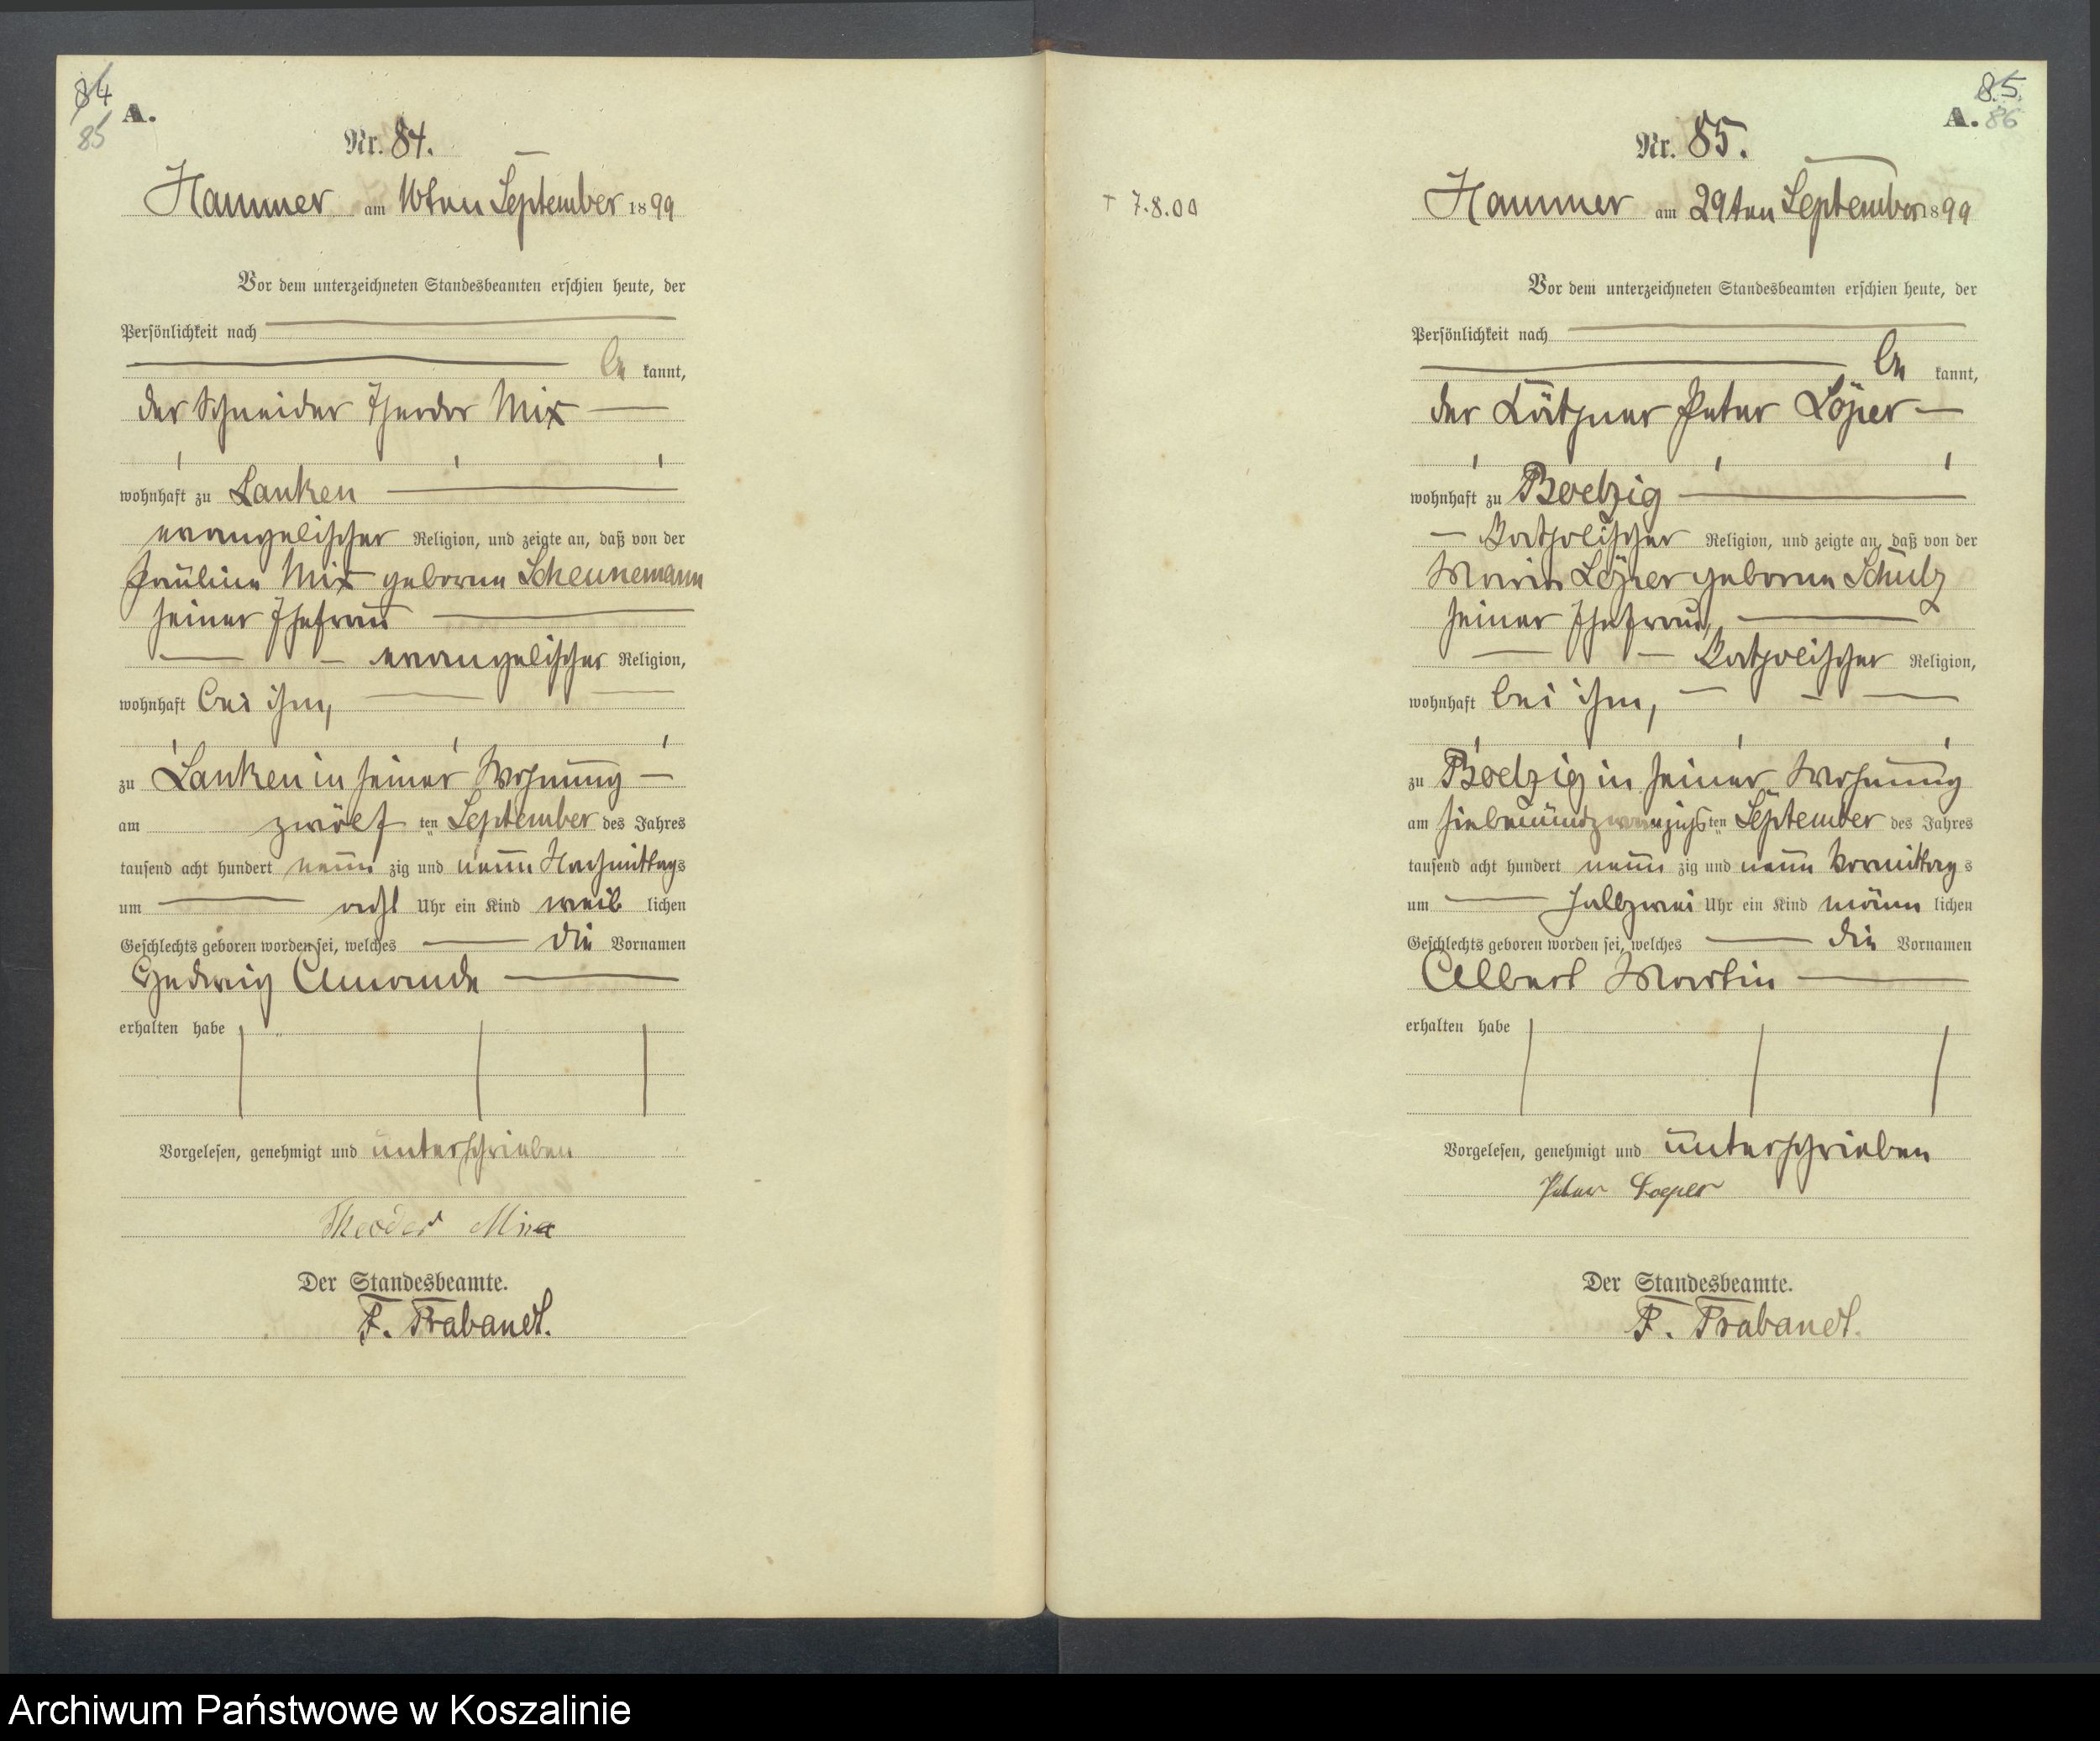 84
85
A.
Nr. 84.
Hammer am 16ten September 1899
Vor dem unterzeichneten Standesbeamten erschien heute, der
Persönlichkeit nach
be kannt,
der Schneider Theodor Mix
wohnhaft zu Lanken
evangelischer Religion, und zeigte an, daß von der
Pauline Mix geborne Scheunemann
seiner Ehefrau
evangelischer Religion,
wohnhaft bei ihm,
zu Lanken in seiner Wohnung
am zwölf ten September des Jahres
tausend acht hundert neun zig und neun Nachmittags
um acht Uhr ein Kind weib lichen
Geschlechts geboren worden sei, welches die Vornamen
Hedwig Amanda
erhalten habe
Vorgelesen, genehmigt und unterschrieben
Theodor Mix
Der Standesbeamte.
F. Trabandt.
85
A. 86
Nr. 85.
† 7.8.00
Hammer am 29ten September 1899
Vor dem unterzeichneten Standesbeamten erschien heute, der
Persönlichkeit nach
be kannt,
der Käthner Peter Löper
wohnhaft zu Boetzig
katholischer Religion, und zeigte an, daß von der
Maria Löper geborne Schulz
seiner Ehefrau,
katholischer Religion,
wohnhaft bei ihm,
zu Boetzig in seiner Wohnung
am siebenundzwanzigs ten September des Jahres
tausend acht hundert neun zig und neun Vormittag s
um halbzwei Uhr ein Kind männ lichen
Geschlechts geboren worden sei, welches die Vornamen
Albert Martin
erhalten habe
Vorgelesen, genehmigt und unterschrieben
Peter Loeper
Der Standesbeamte.
F. Trabandt.
Archiwum Państwowe w Koszalinie